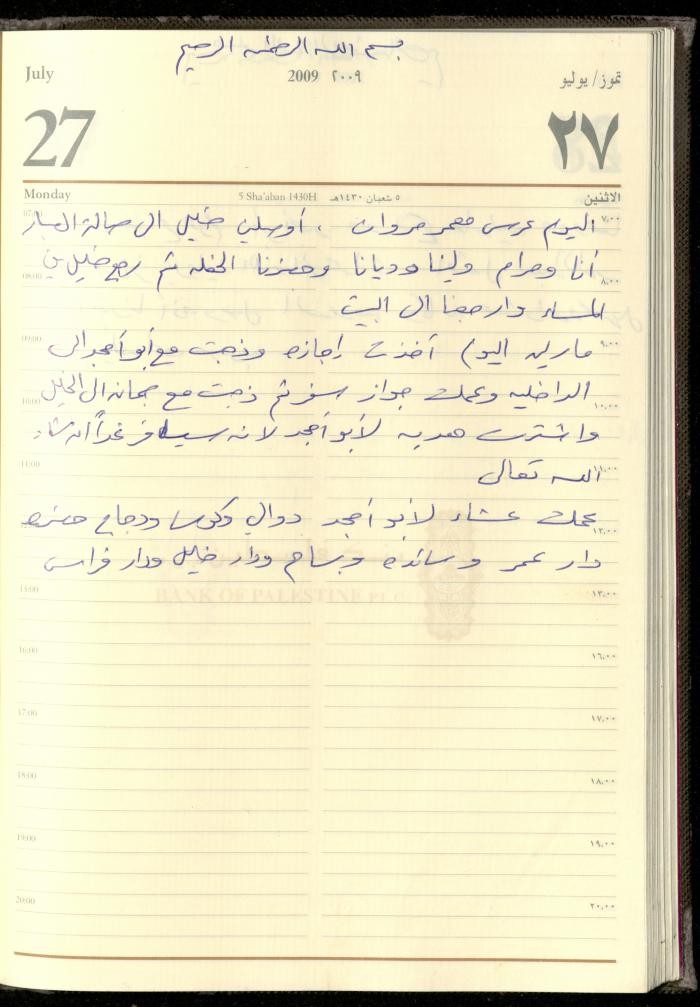 بسم الله الرحمن الرحيم
July 2009 ٢٠٠٩ تموز/يوليو
27 ٢٧
Monday 5 Sha'aban 1430H ٥ شعبان ١٤٣٠هـ الاثنين
07:00 ٧,٠٠
اليوم عرس معمر مروان ، أوصلني خليل ال صالة
أنا ومرام ولينا وديانا وحضرنا الحفله ثم رجع خليل في
08:00 ٨,٠٠
المساء وارجعنا ال البيت
09:00 ٩,٠٠
مارلين اليوم أخذت إجازه وذهبت مع أبو أمجد الى
الداخليه وعملت جواز سفر ثم ذهبت مع جمانه ال الخليل
10:00 ١٠,٠٠
واشترت هديه لأبو أمجد لانه سيسافر غداً ان شاء
11:00 ١١,٠٠
الله تعالى
عملت عشاء لأبو أمجد دوالي وكوسا ودجاج حضره
١٢,٠٠
دار عمر وسائده وبسام ودار خليل ودار فراس
13:00 ١٣,٠٠
BANK OF PALESTINE
16:00 ١٦,٠٠
17:00 ١٧,٠٠
18:00 ١٨,٠٠
19:00 ١٩,٠٠
20:00 ٢٠,٠٠